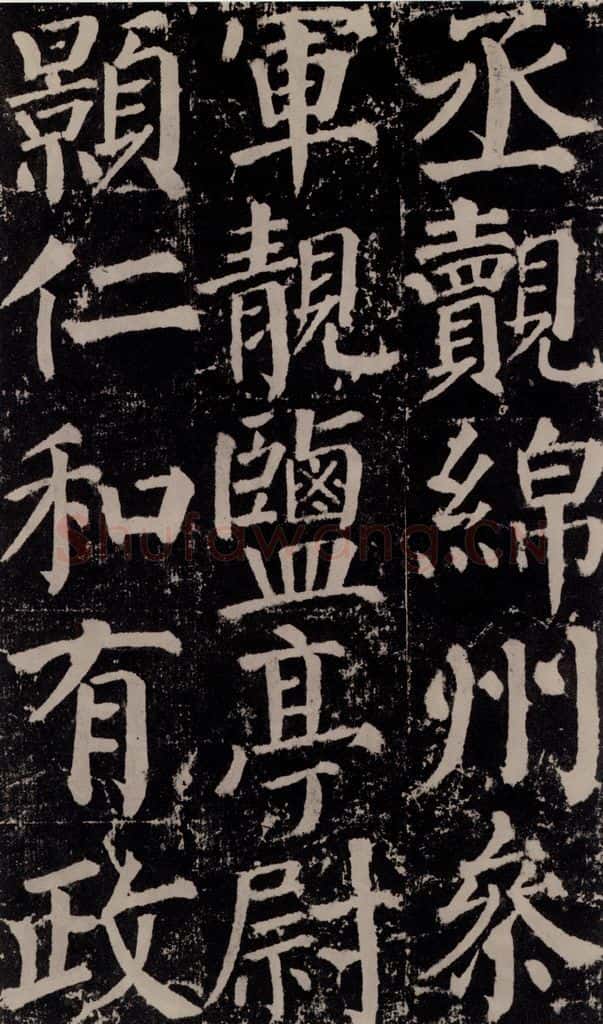 丞覿綿州參
軍靚鹽亭尉
顥仁和有政
Shufawang.CN